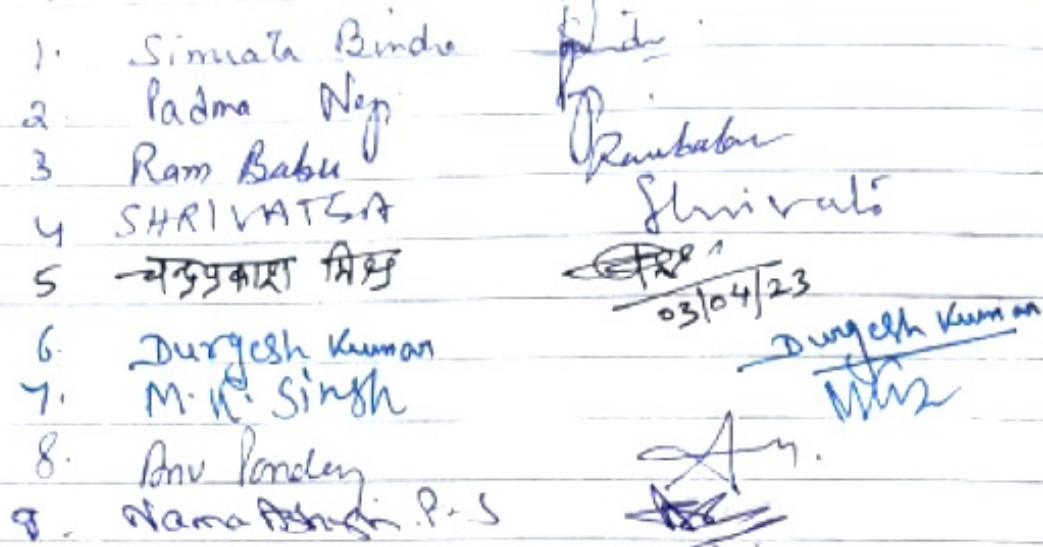 1. Bindra
2 Padma Negi
3 Ram Babu Rambabu
4 SHRIVATSA Shrivats
5 चन्द्रप्रकाश मिश्र
03/04/23
6. Durgesh Kumar Durgesh Kumar
7. M.K. Singh
8. Anu Pandey
9. P.S